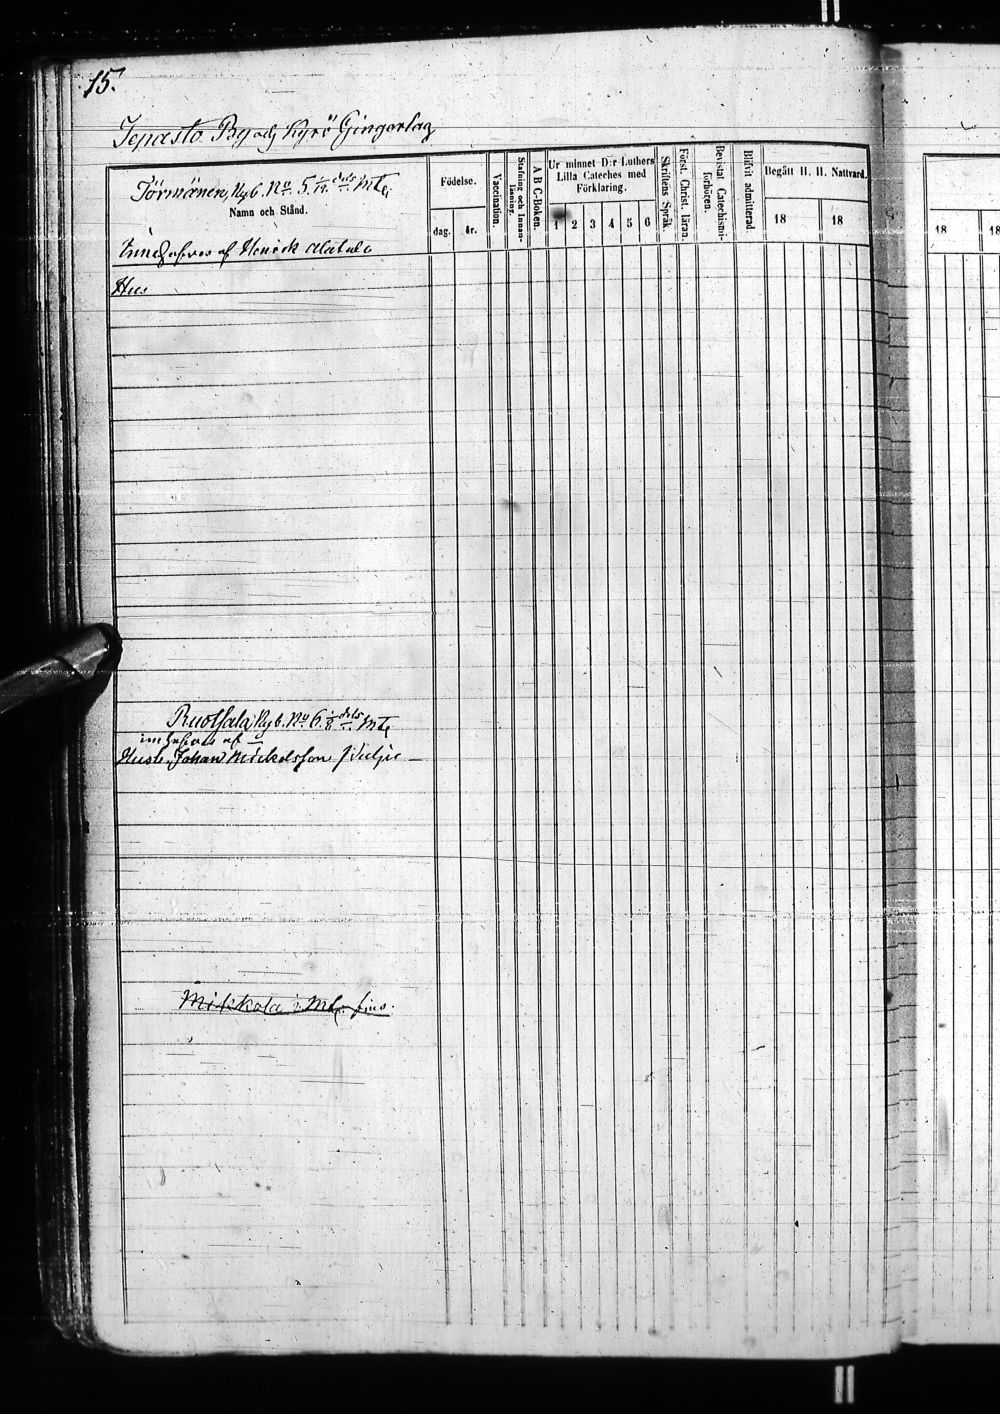 15.
Jepasto By och Kyrö Gingerlag
Törmänen, Nyb. No 5. 1/12 dels Mtl
Namn och Stånd.
Födelse.
dag. år.
Vaccination.
Stafning och Innan-läsning.
A B C-Boken.
Ur minnet D:r Luthers
Lilla Cateches med
Förklaring.
1 2 3 4 5 6
Skriftens Språk.
Först. Christ. läran.
Bevistat Catechismi-förhören.
Blifvit admitterad.
Begått H. H. Nattvard.
18 18
18 18
Innehafves af Henrik Alatalo
Hus
Ruotsala, Nyb. No 6. 1/8 dels Mtl
innehafves af
Husb. Johan Mickelsson
Mikkola